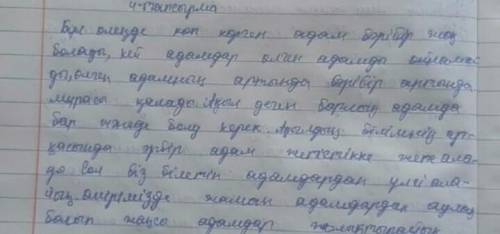 4-тапсырма
Бұл өлеңде көп көрген адам бәрібір жоқ
болады, кей адамдар өлген адамды ойламай
ды, өлген адамның артында бәрібір артында
мұрасы қалады. Ақыл деген барлық адамда
бар және болу керек. Ақылдың білімнің арқ
қасында әрбір адам жетістікке жете ала
ды. Сол біз білетін адамдардан үлгі ала
йық өмірімізде жаман адамдардан аулақ
болып жақсы адамдар